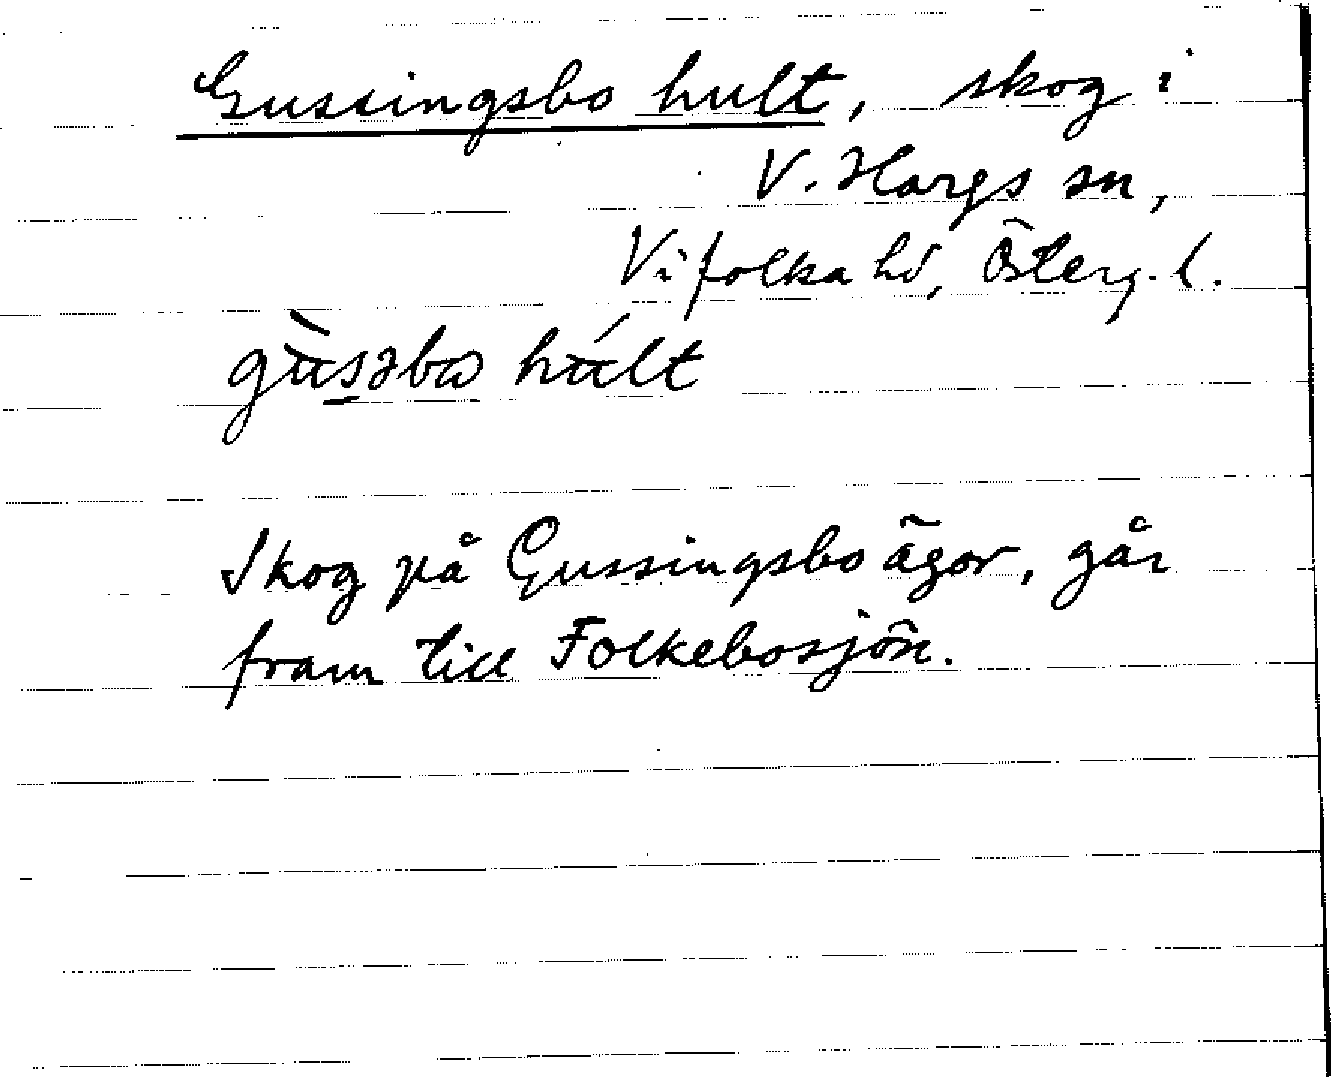 Gussingsbo hult, skog i
V. Hargs sn,
Vifolka hd, Österg. l.
gùsəbω húlt
Skog på Gussingsbo ägor, går
fram till Folkebosjön.